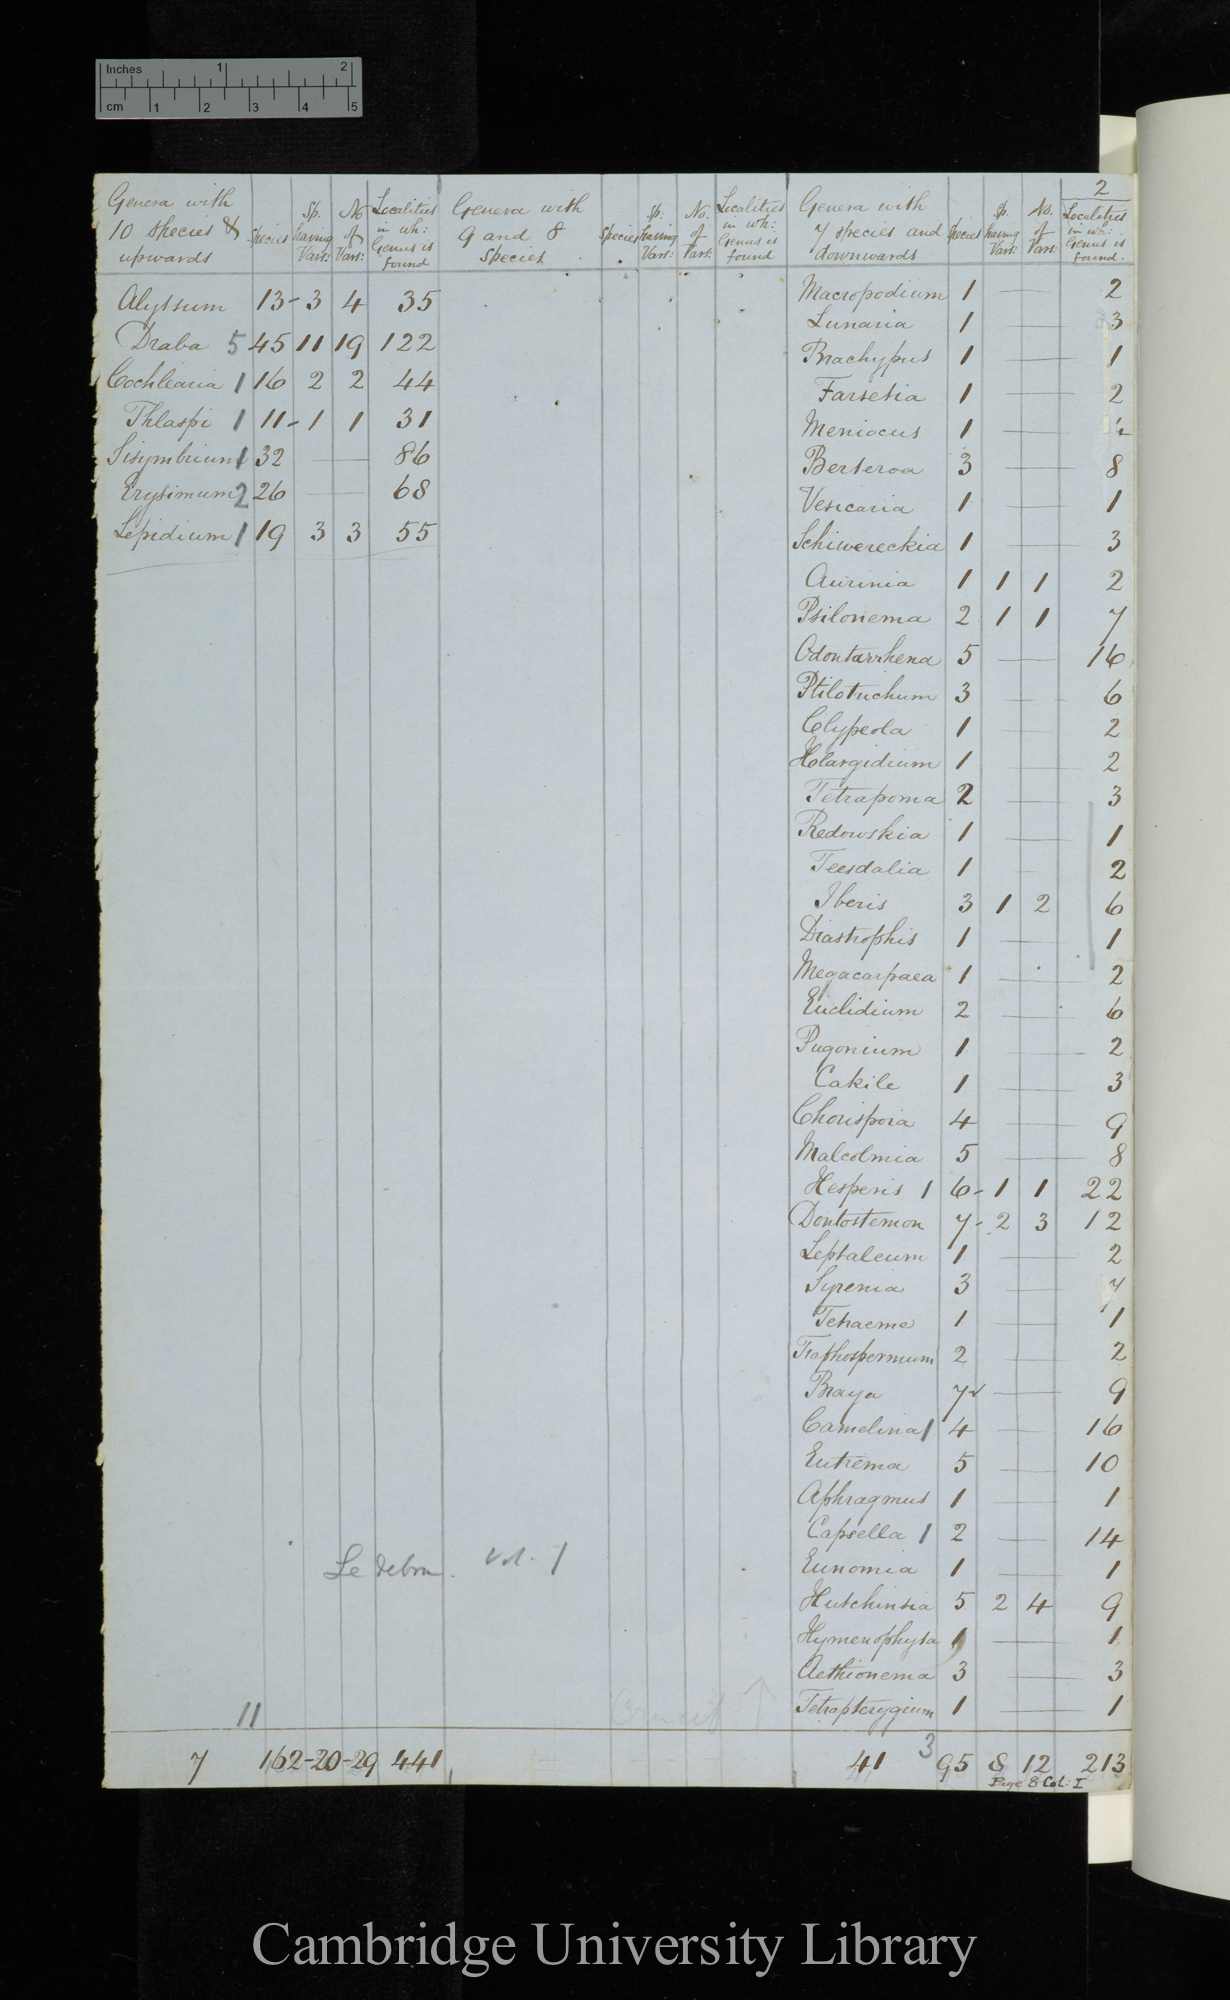 Inches 1 2
cm 1 2 3 4 5
2
Genera with 10 species & upwards | Species | Sp. having Vars: | No of Vars: | Localities in wh: Genus is found | Genera with 9 and 8 Species | Species | Sp. having Vars: | No. of Vars: | Localities in wh: Genus is found | Genera with 7 species and downwards | Species | Sp. having Vars: | No. of Vars: | Localities in wh: Genus is found.
Alyssum 13 - 3 4 35
Draba 5 45 11 19 122
Cochlearia 1 16 2 2 44
Thlaspi 1 11 - 1 1 31
Sisymbrium 1 32 — 86
Erysimum 2 26 — 68
Lepidium 1 19 3 3 55
11
7 162 - 20 - 29 441
Ledebour. Vol. 1
Crucif
Macropodium 1 — 2
Lunaria 1 — 3
Brachypus 1 — 1
Farsetia 1 — 2
Meniocus 1 —
Berteroa 3 — 8
Vesicaria 1 — 1
Schiwereckia 1 — 3
Aurinia 1 1 1 2
Psilonema 2 1 1 7
Odontarrhena 5 — 16
Ptilotrichum 3 — 6
Clypeola 1 — 2
Hlargidium 1 — 2
Tetrapoma 2 — 3
Redowskia 1 — 1
Teesdalia 1 — 2
Iberis 3 1 2 6
Diastrophis 1 — 1
Megacarpaea 1 — 2
Euclidium 2 — 6
Pugonium 1 — 2
Cakile 1 — 3
Chorispora 4 — 9
Malcolmia 5 — 8
Hesperis 1 6 - 1 1 22
Dontostemon 7 - 2 3 12
Leptaleum 1 — 2
Syrenia 3 — 7
Tetracme 1 — 1
Traphospermum 2 — 2
Braya 7 — 9
Camelina 1 4 — 16
Eutrema 5 — 10
Aphragmus 1 — 1
Capsella 1 2 — 14
Eunomia 1 — 1
Hutchinsia 5 2 4 9
Hymenophysa 1 — 1
Aethionema 3 — 3
Tetrapterygium 1 — 1
3
41 95 8 12 213
Page 8 Col: I
Cambridge University Library